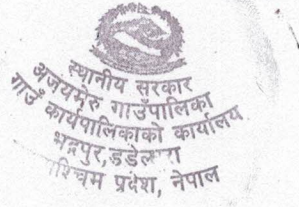 स्थानीय सरकार
अजयमेरु गाउँपालिका
गाउँ कार्यपालिकाको कार्यालय
भद्रपुर, डडेल्धुरा
पश्चिम प्रदेश, नेपाल